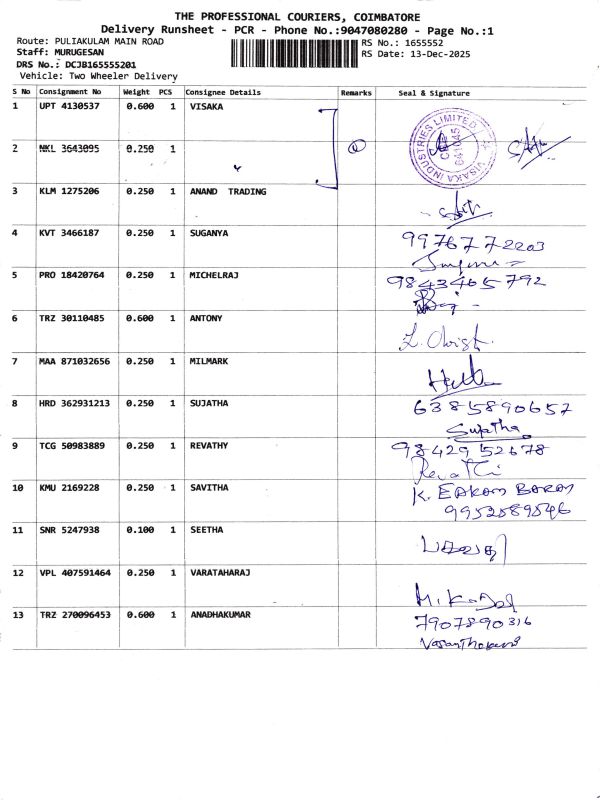 THE PROFESSIONAL COURIERS, COIMBATORE
Delivery Runsheet - PCR - Phone No.:9047080280 - Page No.:1
Route: PULIAKULAM MAIN ROAD
RS No.: 1655552
Staff: MURUGESAN
RS Date: 13-Dec-2025
DRS No.: DCJB165555201
Vehicle: Two Wheeler Delivery
S No Consignment No Weight PCS Consignee Details Remarks Seal & Signature
1 UPT 4130537 0.600 1 VISAKA
VISAKA INDUSTRIES LIMITED
CBE
641045
2 NKL 3643095 0.250 1
3 KLM 1275206 0.250 1 ANAND TRADING
4 KVT 3466187 0.250 1 SUGANYA
9976772203
5 PRO 18420764 0.250 1 MICHELRAJ
9843465792
6 TRZ 30110485 0.600 1 ANTONY
7 MAA 871032656 0.250 1 MILMARK
8 HRD 362931213 0.250 1 SUJATHA
6385890657
Sujatha
9 TCG 50983889 0.250 1 REVATHY
9842952678
Revathi
10 KMU 2169228 0.250 1 SAVITHA
9952089546
11 SNR 5247938 0.100 1 SEETHA
12 VPL 407591464 0.250 1 VARATAHARAJ
13 TRZ 270096453 0.600 1 ANADHAKUMAR
7907890316